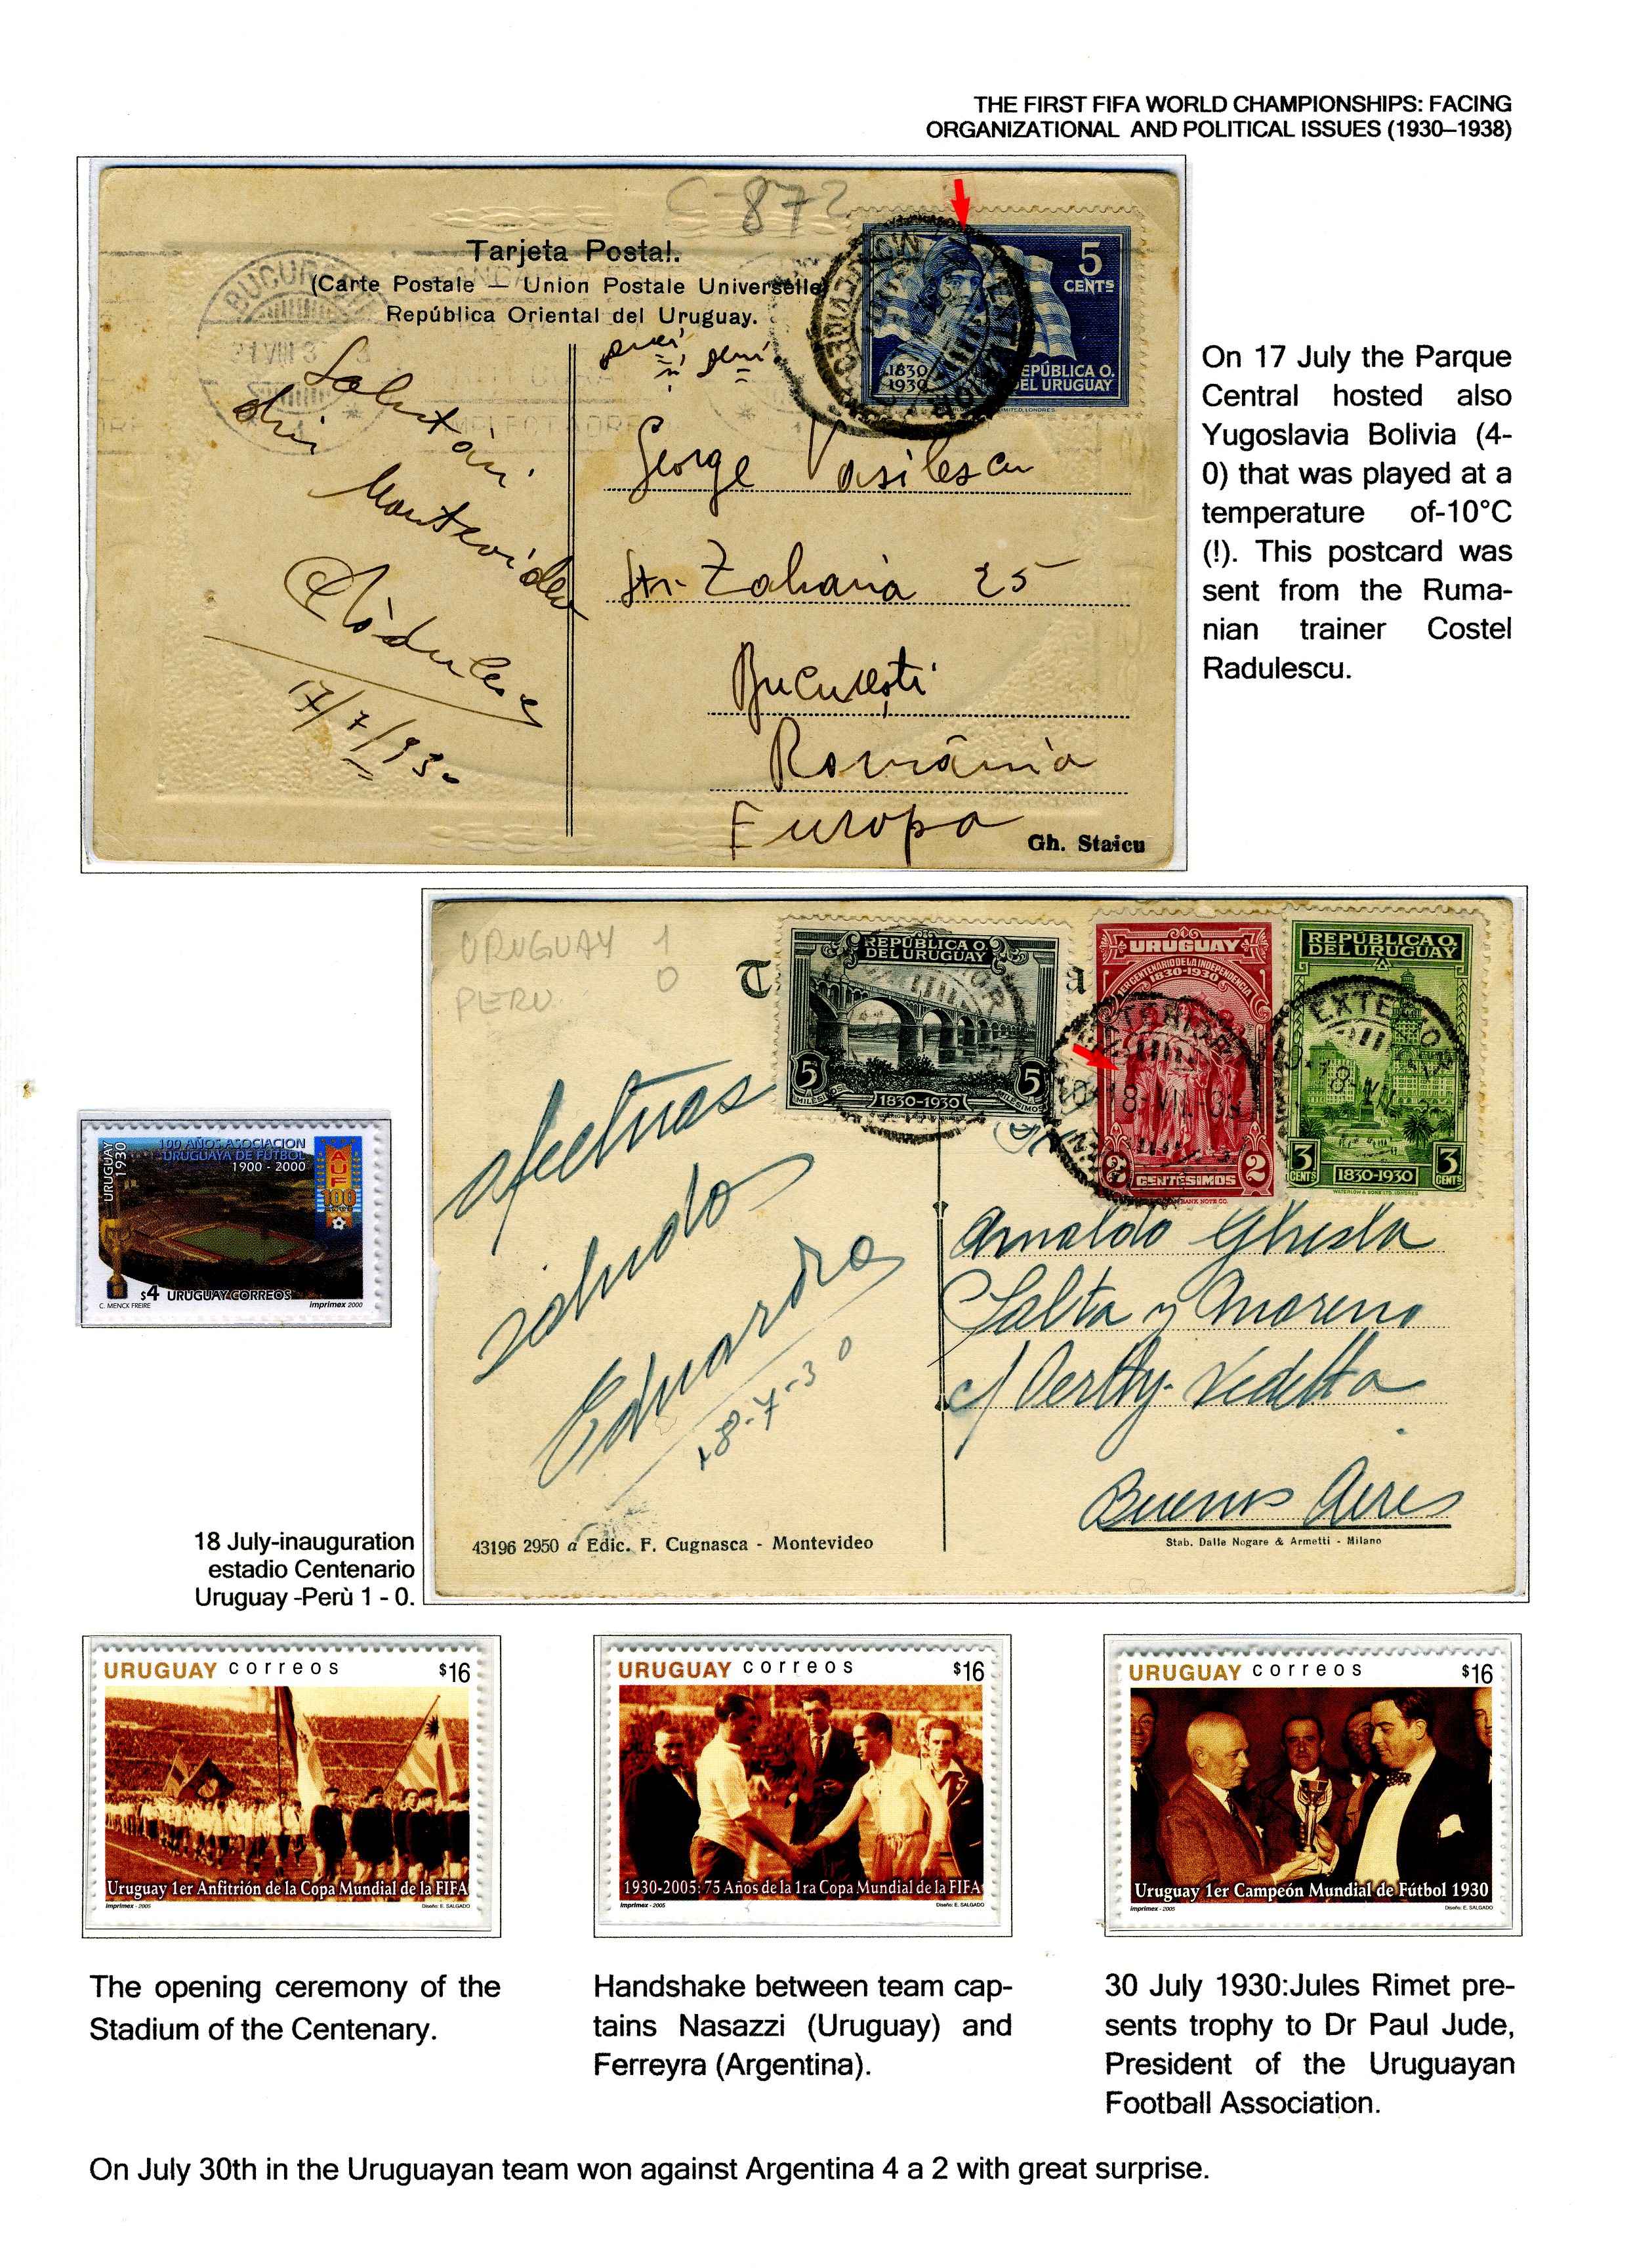 THE FIRST FIFA WORLD CHAMPIONSHIPS: FACING
ORGANIZATIONAL AND POLITICAL ISSUES (1930–1938)
C-872
Tarjeta Postal.
(Carte Postale — Union Postale Universelle)
República Oriental del Uruguay.
BUCUREȘTI
21 VIII 3
5
CENTS
1830
1930
REPÚBLICA O.
DEL URUGUAY
Salutări
din
Montevideo
Rădulescu
17/7/930
George Vasilescu
Str. Zaharia 25
București
România
Europa
Gh. Staicu
On 17 July the Parque
Central hosted also
Yugoslavia Bolivia (4-
0) that was played at a
temperature of-10°C
(!). This postcard was
sent from the Ruma-
nian trainer Costel
Radulescu.
URUGUAY 1
PERU. 0
REPÚBLICA O.
DEL URUGUAY
5 5
MILÉSIMOS MILÉSIMOS
1830-1930
URUGUAY
1ER CENTENARIO DE LA INDEPENDENCIA
1830-1930
EXTERIOR
18-VII-30
2 2
CENTÉSIMOS
REPÚBLICA O.
DEL URUGUAY
EXTERIOR
18-VII
3 3
CENTS CENTS
1830-1930
WATERLOW & SONS LTD. LONDRES
afectuos
saludos
Eduardo
18-7-30
Arnaldo Ghisla
Salta y Moreno
Buenos Aires
43196 2950 a Edic. F. Cugnasca - Montevideo
Stab. Dalle Nogare & Armetti - Milano
URUGUAY
1930
100 AÑOS ASOCIACION
URUGUAYA DE FÚTBOL
1900 - 2000
AUF
100
$4 URUGUAY CORREOS
C. MENCK FREIRE
imprimex 2000
18 July-inauguration
estadio Centenario
Uruguay -Perù 1 - 0.
URUGUAY correos $16
Uruguay 1er Anfitrión de la Copa Mundial de la FIFA
imprimex - 2005
Diseño: E. SALGADO
URUGUAY correos $16
1930-2005: 75 Años de la 1ra Copa Mundial de la FIFA
imprimex - 2005
Diseño: E. SALGADO
URUGUAY correos $16
Uruguay 1er Campeón Mundial de Fútbol 1930
imprimex - 2005
Diseño: E. SALGADO
The opening ceremony of the
Stadium of the Centenary.
Handshake between team cap-
tains Nasazzi (Uruguay) and
Ferreyra (Argentina).
30 July 1930:Jules Rimet pre-
sents trophy to Dr Paul Jude,
President of the Uruguayan
Football Association.
On July 30th in the Uruguayan team won against Argentina 4 a 2 with great surprise.